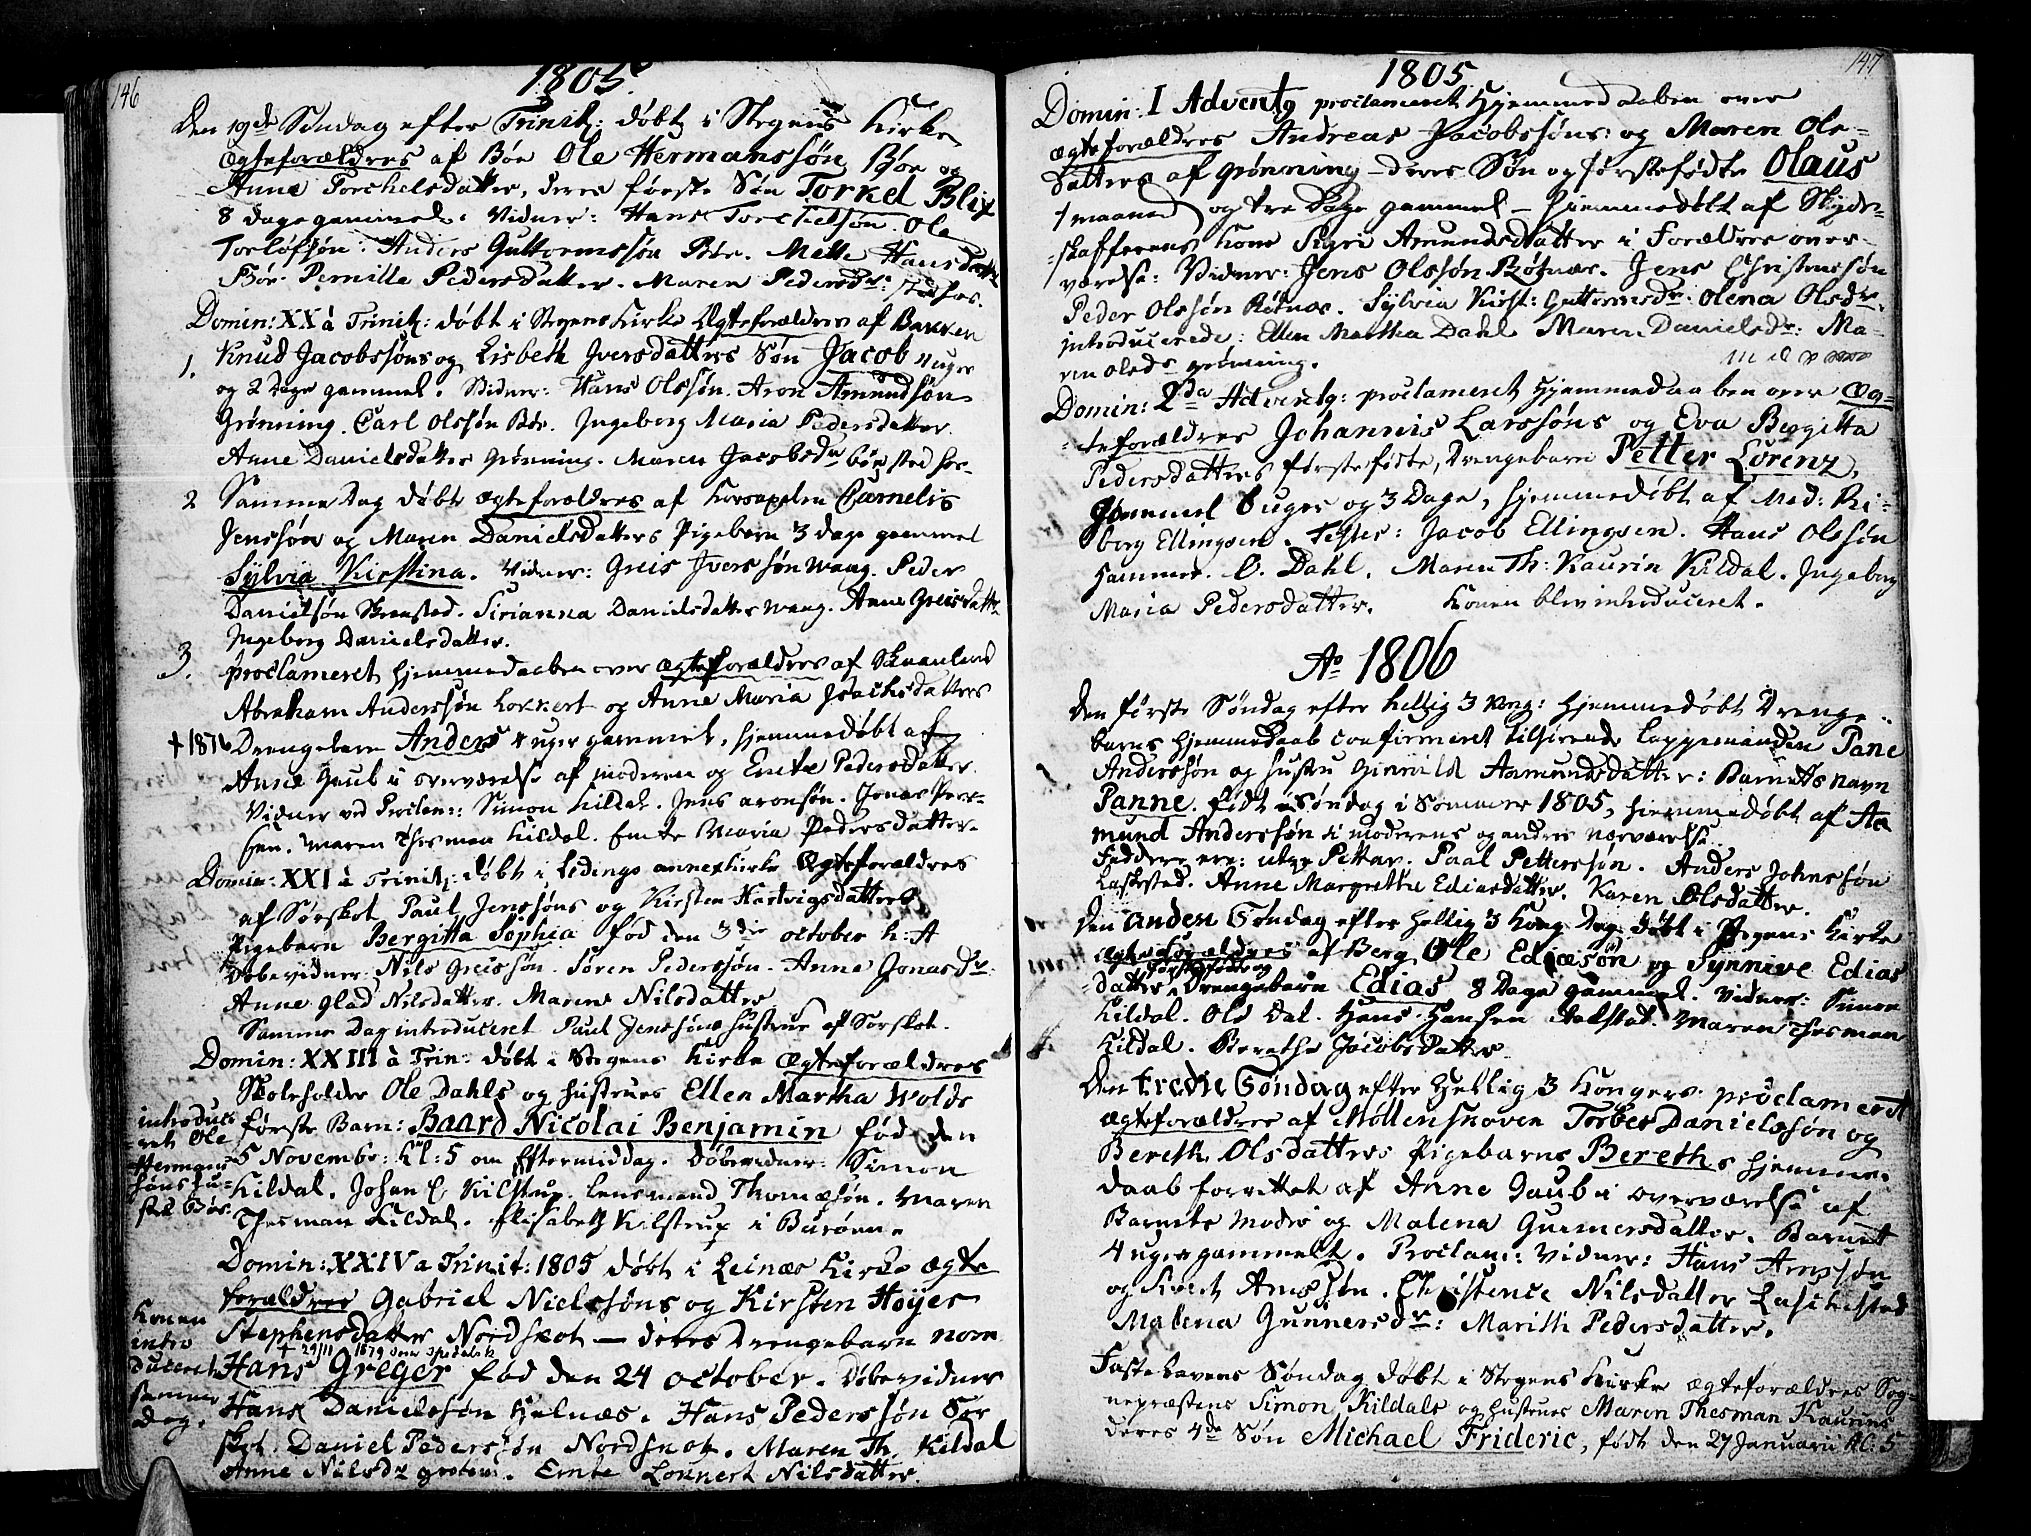 146
1805
Den 19de Søndag efter Trinit: døbt i Stegens Kirke
Ægteforældres af Bøe Ole Hermanssøn Bøe og
Anne Torchelsdatter, deres første Søn Torkel Blix
8 Dage gammel. Vidner: Hans Ole
Torløfsøn. Anders Guttormssøn Bøe. Mette Hansdatter
Bøe. Pernille Pedersdatter. Maren Pedersdr:
Domin: XX à Trinit: døbt i Stegens Kirke Ægteforældres af Bakken
1. Knud Jacobssøns og Lisbeth Iversdatters Søn Jacob 4 uger
og 2 Dage gammel. Vidner: Hans Olssøn. Aron Amundsøn
Grønning. Carl Olssøn Bøe. Ingeborg Maria Pedersdatter.
Anne Danielsdatter Grønning. Maren Jacobsdr
2 Samme Dag døbt Ægteforældres af Cornelis
Jenssøn og Maren Danielsdatters Pigebarn 3 dage gammel
Sÿlvia Kirstina. Vidner: Greis Iverssøn Wang. Peder
Danielsøn. Sirianna Danielsdatter Wang. Anne Greisdatter
Ingeborg Danielsdatter.
3. proclameret hjemmedaaben over Ægteforældres af
Abraham Anderssøn Lokkert og Anne Maria datters
† 1876 Drengebarn Anders 4 uger gammel, hjemmedøbt af
Anne Gaub i overværelse af moderen og Emte Pedersdatter.
Vidner ved Proclam: Simon Kildal. Jens Aronsøn. Jonas Peer-
sen. Maren Thesman Kildal. Emte Maria Pedersdatter.
Domin: XXI à Trinit: døbt i Ledings annexkirke Ægteforældres
af Sørskot Paul Jenssøns og Kirsten Hartvigsdatters
Pigebarn Bergitta Sophia fød den 3die october h: A
Døbevidner: Nils Greissøn. Søren Pederssøn. Anne Jonasdr.
Anne Glad Nilsdatter. Maren Nilsdatter
Samme Dag introduceret Paul Jenssøns Hustrue af Sørskot.
Domin: XXIII à Trin: døbt i Stegens Kirke Ægteforældres
Skoleholder Ole Dahls og Hustrues Ellen Martha Wolds
første Barn: Baard Nicolai Benjamin fød den
5 Novembr: Kl: 5 om Eftermiddag. Døbevidner: Simon
Kildal. Johan C Kilstrup. Lensmand Thomæsøn. Maren
Thesman Kildal. Elisabeth Kilstrup i Burøen.
introduce
ret Ole
Hermans
søns Hu-
strue Bøe.
Domin: XXIV a Trinit: 1805 døbt i Leines Kirke Ægte
forældres Gabriel Nielssøns og Kirsten Høyer
Stephensdatter Nordskot — deres Drengebarn nom
† 29/11 1879
Hans Greger fød den 24 october. Døbevidner
Hans Danielssøn Helnæs. Hans Pederssøn Sør
skot. Daniel Pederssøn Nordskot. Maren Th. Kildal
Anne Nilsdr. Emte Lokkert Nilsdatter.
Konen
intro
duceret
samme
Dag.
147
1805
Domin: I Advents proclameret Hjemmedaaben over
Ægteforældres Andreas Jacobssøns: og Maren Ols-
datters af Grønning – deres Søn og førstefødte Olaus
1 maaned og tre Dage gammel – hjemmedøbt af Skyds-
skafferens Kone Sigri Amundsdatter i Forældres over-
værelse: Vidner: Jens Olssøn Røtnæs. Jens Christenssøn
Peder Olssøn Røtnæs. Sylvia Kirst: Guttormsdr: Olena Olsdr.
introducerede: Ellen Martha Dahl Maren Danielsdr: Ma-
ren Olsdr Grønning.
Domin: 2da Advents: proclameret Hjemmedaaben over Æg-
teforældres Johannis Larssøns og Eva Bergitta
Pedersdatters førstefødte, Drengebarn Petter Lorenz,
Gammel 6 uger og 3 Dage, hjemmedøbt af Mad: Ri-
borg Ellingsen. Testes: Jacob Ellingsen. Hans Olssøn
Hammer. O. Dahl. Maren Th: Kaurin Kildal. Ingeborg
Maria Pedersdatter. Konen blev introduceret.
Ao 1806
Den første Søndag efter hellig 3 Kong: hjemmedøbt Drenge
barns hjemmedaab confirmeret tilhørende Lappemanden Pane
Anderssøn og Hustru Aamundsdatter: Barnets navn
Panne. født Søndag i Sommer 1805, hjemmedøbt af Aa
mund Anderssøn i moderens og andres nærværelse.
Faddere ere: Pettar. Paal Petterssøn. Anders Johnssøn
Laskestad. Anne Margrethe Ediasdatter. Karen Olsdatter.
Den anden Søndag efter hellig 3 Kong Dag døbt i Stegens Kirke
Ægteforældres af Berg Ole Ediæsøn og Synnive Edias
datters førstefødte Drengebarn Edias 8 Dage gammel. Vidner: Simon
Kildal. Ole Dal. Hans Hansen. Maren Thesman
Kildal. Berethe Jacobsdatter
Den tredie Søndag efter Hellig 3 Kongers proclameret
Ægteforældres af Møllenskoven Torber Danielssøn og
Bereth Olsdatters Pigebarns Bereths hjemme-
daab forrettet af Anne Gaub i overværelse af
Barnets Moder og Malena Gunnersdatter. Barnet
4 uger gammelt. Proclam: Vidner: Hans Arnssøn
og Arnssøn. Christence Nilsdatter Laschestad
Malena Gunnersdr: Marith Pedersdatter.
Fastelavens Søndag døbt i Stegens Kirke Ægteforældres Sog-
nepræstens Simon Kildals og Hustrues Maren Thesman Kaurins
deres 4de Søn Michael Frideric, født den 27 Januarii Kl: 5